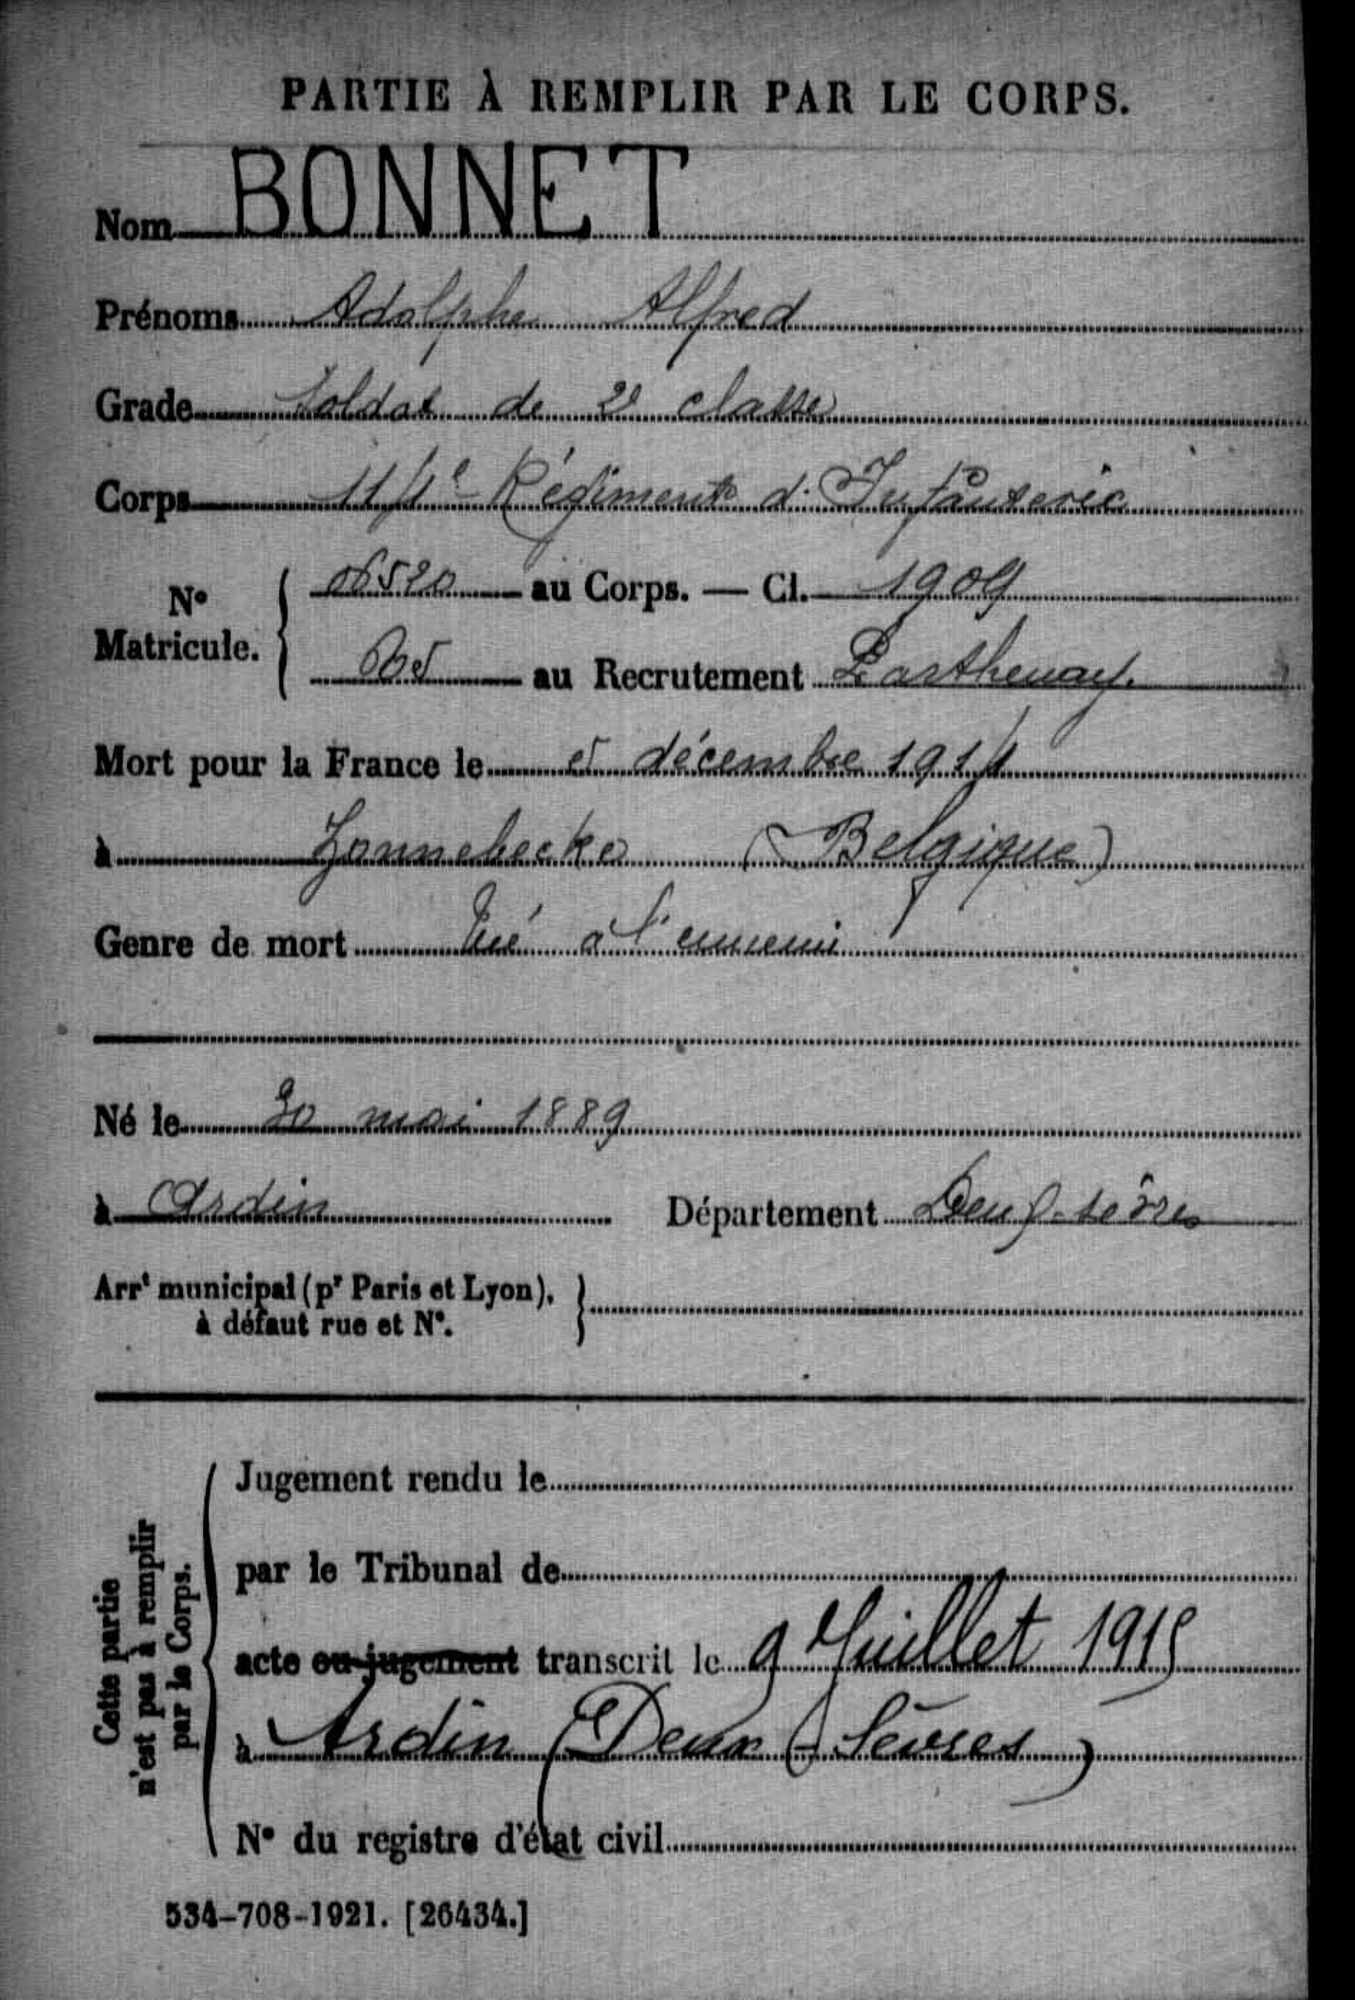 PARTIE À REMPLIR PAR LE CORPS.
Nom BONNET
Prénoms Adolphe Alfred
Grade Soldat de 2e classe
Corps 114e Régiment d'Infanterie
No Matricule. 06520 au Corps. — Cl. 1909
665 au Recrutement Parthenay.
Mort pour la France le 5 décembre 1914
à Zonnebecke (Belgique)
Genre de mort Tué à l'ennemi
Né le 30 mai 1889
à Ardin Département Deux-Sèvres
Arrt municipal (pr Paris et Lyon),
à défaut rue et No.
Cette partie
n'est pas à remplir
par le Corps.
Jugement rendu le
par le Tribunal de
acte ou jugement transcrit le 9 Juillet 1915
à Ardin (Deux-Sèvres)
No du registre d'état civil
534-708-1921. [26434.]